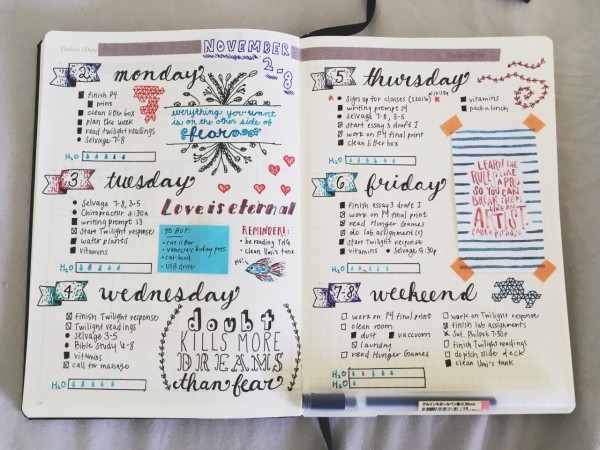 NOVEMBER
2-8
2 monday
finish P4
print
clean litter box
plan the week
read Twilight readings
Selvage 7-8
H2O
everything you want
is on the other side of
fear
3 tuesday
Selvage 7-8, 3-5
Chiropractor 6:30a
writing prompt 13
start Twilight response
water plants
vitamins
H2O
Love is eternal
TO BUY:
cat litter
cat food
USB driver
REMINDERS:
be reading THG
clean Uni's tank
4 wednesday
finish Twilight response
Twilight readings
Selvage 3-5
Bible Study 6-8
vitamins
call for massage
H2O
doubt
KILLS MORE
DREAMS
than fear
5 thursday
sign up for classes
writing prompt 14
selvage 7-8, 3-5
start essay 3 draft 1
work on P4 final print
clean litter box
vitamins
pack a lunch
H2O
LEARN THE
RULES LIKE
A PRO,
SO YOU CAN
BREAK THEM
LIKE AN
ARTIST
PABLO PICASSO
6 friday
finish essay 3 draft 1
work on P4 final print
read Hunger Games
do lab assignment(s)
start Twilight response
vitamins
Selvage
H2O
7-8 weekend
work on P4 final print
clean room
dust
vaccuum
laundry
read Hunger Games
work on Twilight response
finish lab assignments
finish Twilight readings
clean Uni's tank
H2O
H2O